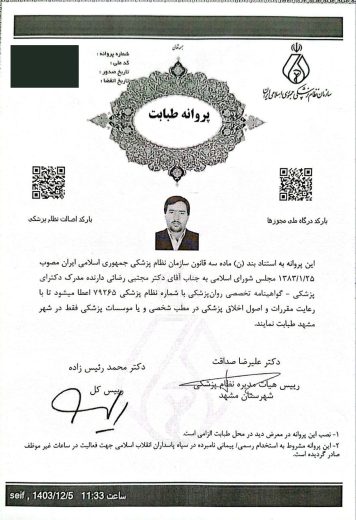 بسمه‌تعالی
شماره پروانه :
کد ملی :
تاریخ صدور :
تاریخ انقضا :
سازمان نظام پزشکی جمهوری اسلامی ایران
پروانه طبابت
بارکد درگاه ملی مجوزها
بارکد اصالت نظام پزشکی
این پروانه به استناد بند (ن) ماده سه قانون سازمان نظام پزشکی جمهوری اسلامی ایران مصوب
۱۳۸۳/۱/۲۵ مجلس شورای اسلامی به جناب آقای دکتر مجتبی رضائی دارنده مدرک دکترای
پزشکی - گواهینامه تخصصی روان‌پزشکی با شماره نظام پزشکی ۷۹۲۶۵ اعطا میشود تا با
رعایت مقررات و اصول اخلاق پزشکی در مطب شخصی و یا موسسات پزشکی فقط در شهر
مشهد طبابت نمایند.
دکتر علیرضا صداقت
رییس هیات مدیره نظام پزشکی
شهرستان مشهد
دکتر محمد رئیس زاده
رییس کل
۱- نصب این پروانه در معرض دید در محل طبابت الزامی است.
۲- این پروانه مشروط به استخدام رسمی/ پیمانی نامبرده در سپاه پاسداران انقلاب اسلامی جهت فعالیت در ساعات غیر موظف
صادر گردیده است.
seif , 1403/12/5 11:33 ساعت